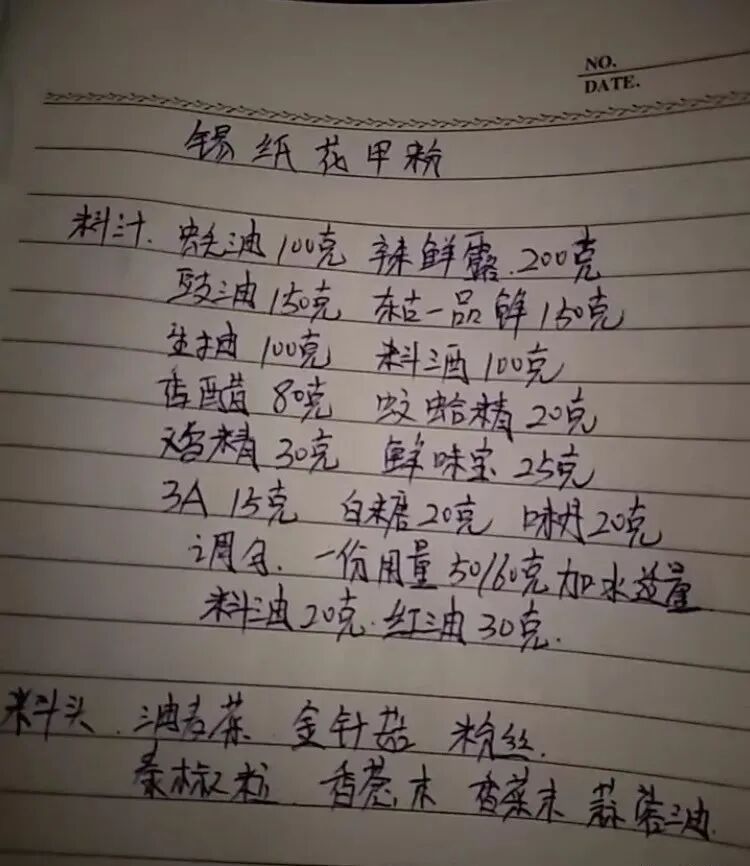 NO.
DATE.
锡纸花甲粉
料汁. 蚝油100克 辣鲜露.200克
豉油150克 东古一品鲜150克
生抽100克 料酒100克
香醋80克 蚊蛤精20克
鸡精30克 鲜味宝25克
3A 15克 白糖20克 味丹20克
调匀. 一份用量50/60克加水适量
料油20克.红油30克.
料头.油麦菜 金针菇 粉丝.
秦椒粒 香葱末 香菜末 蒜蓉油